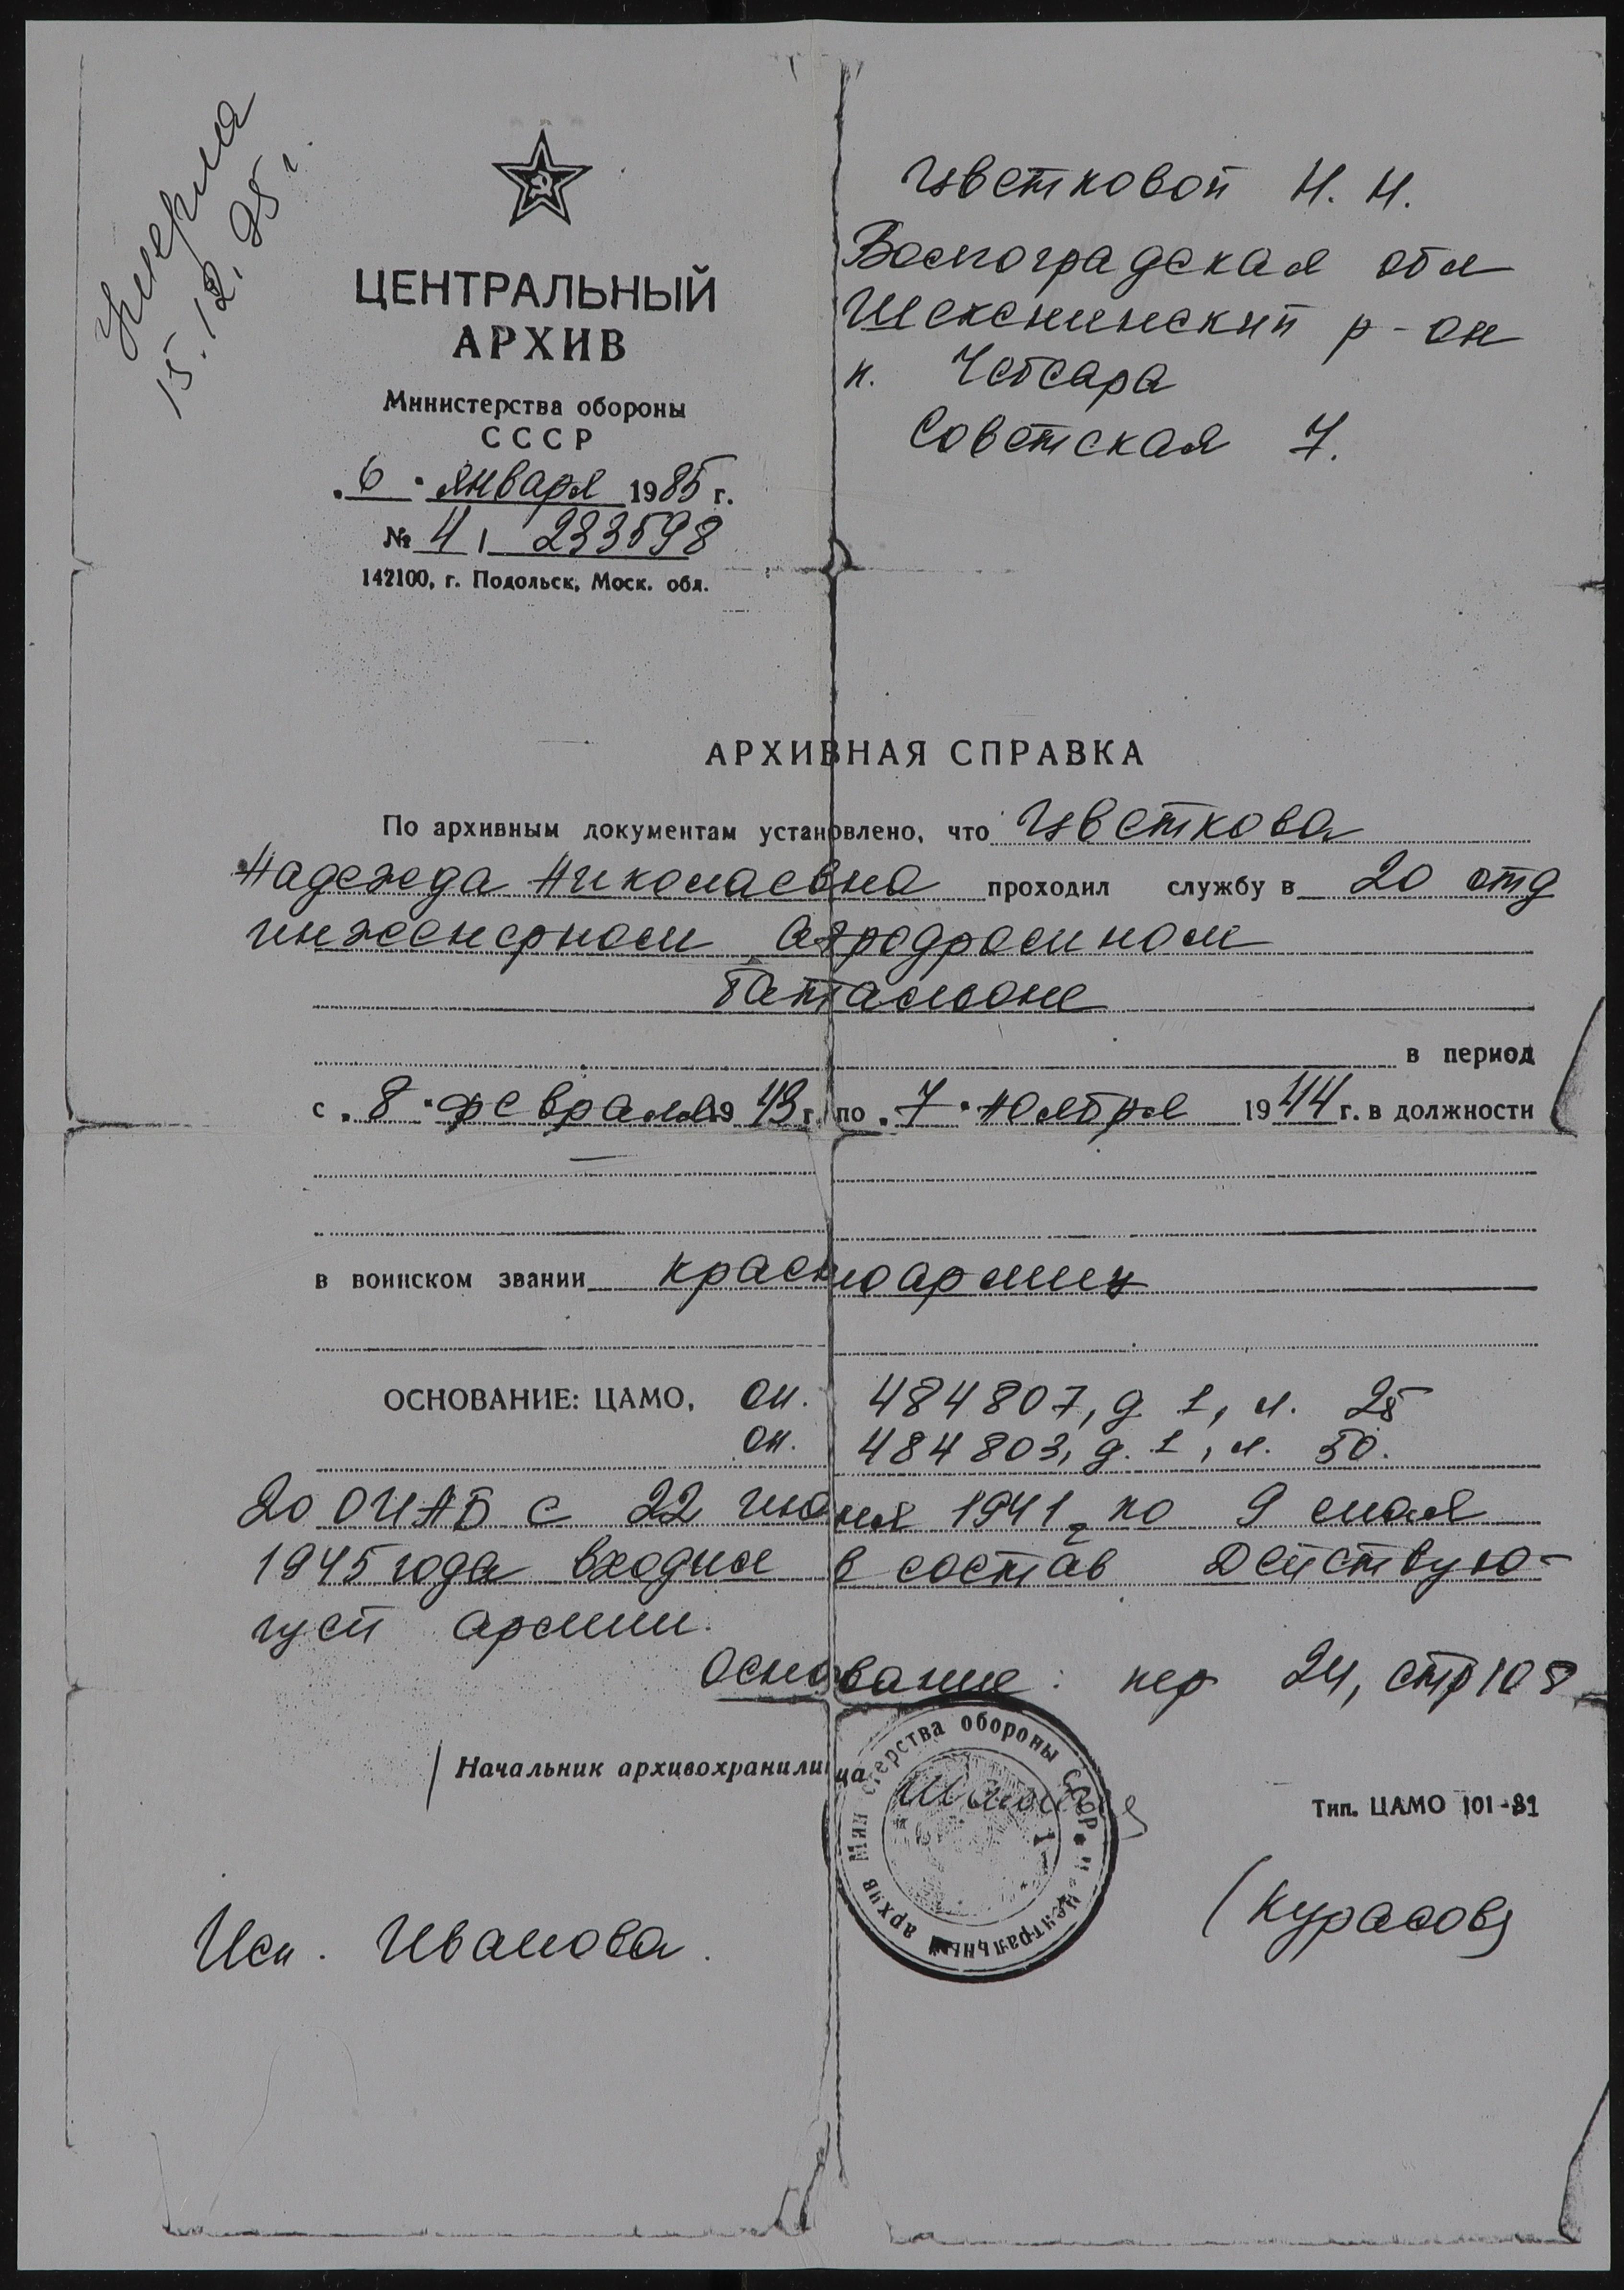 умерла
15.12.95 г.
ЦЕНТРАЛЬНЫЙ
АРХИВ
Министерства обороны
СССР
"6" января 1985 г.
№ 4/ 233598
142100, г. Подольск, Моск. обл.
Цветковой Н. Н.
Волгоградская обл
Шекснинский р-он
п. Чебсара
Советская 7.
АРХИВНАЯ СПРАВКА
По архивным документам установлено, что Цветкова
Надежда Николаевна проходил службу в 20 отд
инженерном аэродромном
батальоне
в период
с "8" февраля 1943 г. по "7" ноября 1944 г. в должности
—
в воинском звании красноармеец
ОСНОВАНИЕ: ЦАМО, оп. 484807, д 1, л. 25
оп. 484803, д. 1, л. 50.
20 ОИАБ с 22 июня 1941 г по 9 мая
1945 года входил в состав действую-
щей армии.
Основание: пер 24, стр 108
Начальник архивохранилища
Центральный архив Министерства обороны СССР
1
Тип. ЦАМО 101-81
Исп. Иванова.
(Курасов)